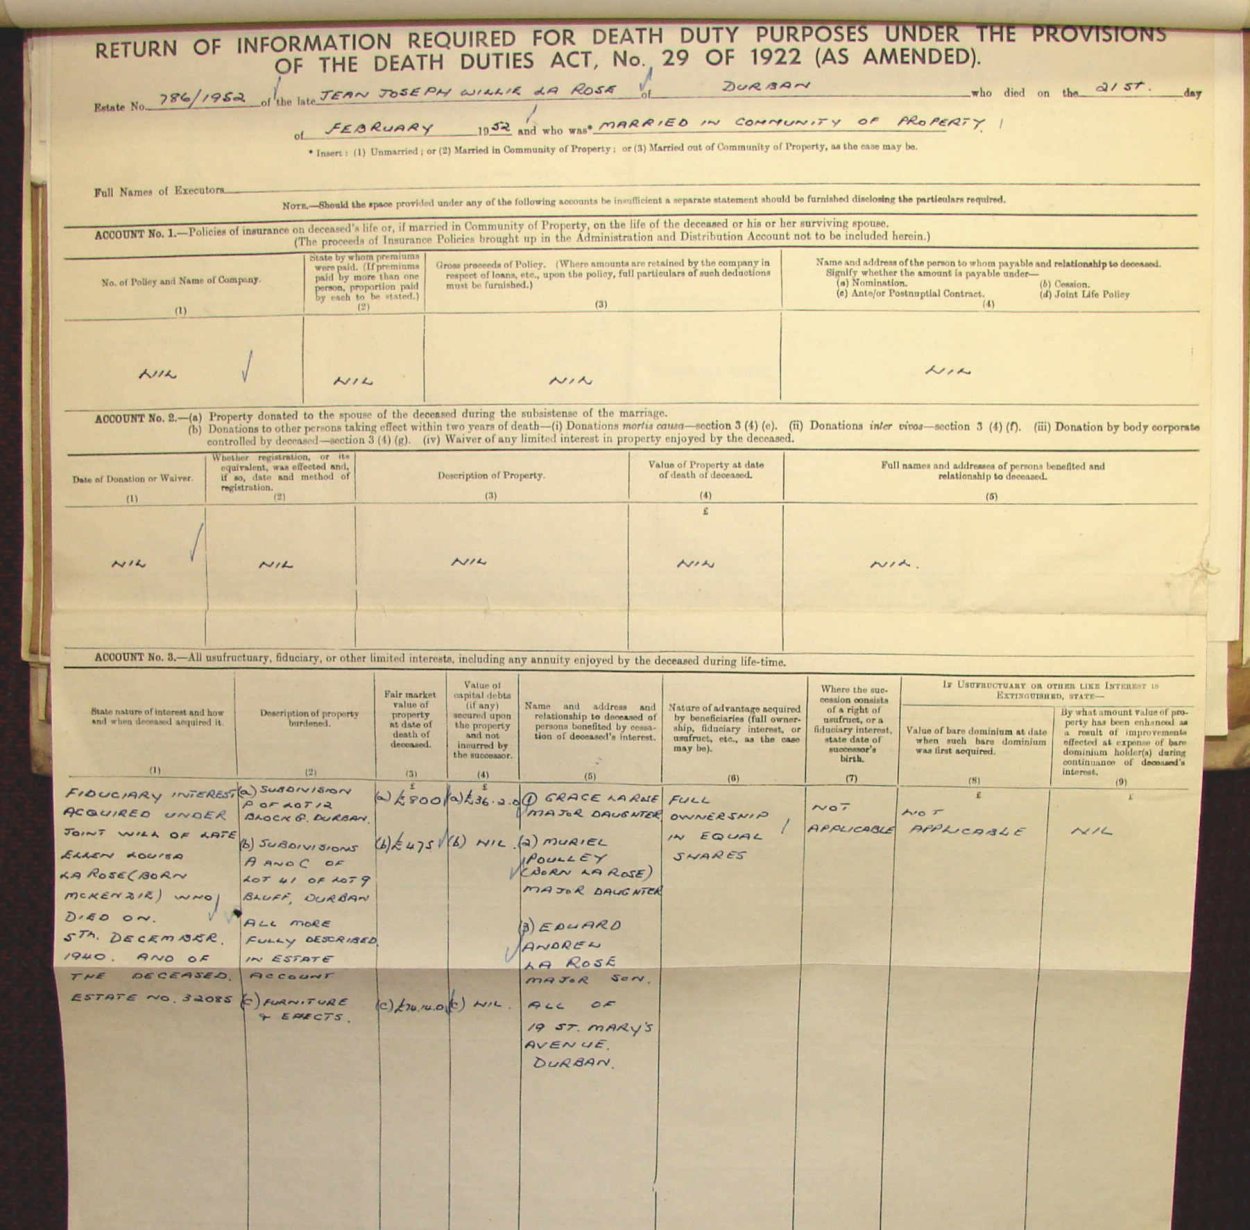 RETURN OF INFORMATION REQUIRED FOR DEATH DUTY PURPOSES UNDER THE PROVISIONS
OF THE DEATH DUTIES ACT, No. 29 OF 1922 (AS AMENDED).
Estate No. 786/1952 of the late JEAN JOSEPH WILLIE LA ROSE of DURBAN who died on the 21ST. day
of FEBRUARY 1952 and who was* MARRIED IN COMMUNITY OF PROPERTY
* Insert: (1) Unmarried; or (2) Married in Community of Property; or (3) Married out of Community of Property, as the case may be.
Full Names of Executors
NOTE.—Should the space provided under any of the following accounts be insufficient a separate statement should be furnished disclosing the particulars required.
ACCOUNT No. 1.—Policies of insurance on deceased's life or, if married in Community of Property, on the life of the deceased or his or her surviving spouse.
(The proceeds of Insurance Policies brought up in the Administration and Distribution Account not to be included herein.)
No. of Policy and Name of Company.
(1)
State by whom premiums
were paid. (If premiums
paid by more than one
person, proportion paid
by each to be stated.)
(2)
Gross proceeds of Policy. (Where amounts are retained by the company in
respect of loans, etc., upon the policy, full particulars of such deductions
must be furnished.)
(3)
Name and address of the person to whom payable and relationship to deceased.
Signify whether the amount is payable under—
(a) Nomination. (b) Cession.
(c) Ante/or Postnuptial Contract. (d) Joint Life Policy
(4)
NIL NIL NIL NIL
ACCOUNT No. 2.—(a) Property donated to the spouse of the deceased during the subsistense of the marriage.
(b) Donations to other persons taking effect within two years of death—(i) Donations mortis causa—section 3 (4) (e). (ii) Donations inter vivos—section 3 (4) (f). (iii) Donation by body corporate
controlled by deceased—section 3 (4) (g). (iv) Waiver of any limited interest in property enjoyed by the deceased.
Date of Donation or Waiver.
(1)
Whether registration, or its
equivalent, was effected and,
if so, date and method of
registration.
(2)
Description of Property.
(3)
Value of Property at date
of death of deceased.
(4)
£
Full names and addresses of persons benefited and
relationship to deceased.
(5)
NIL NIL NIL NIL NIL.
ACCOUNT No. 3.—All usufructuary, fiduciary, or other limited interests, including any annuity enjoyed by the deceased during life-time.
State nature of interest and how
and when deceased acquired it.
(1)
Description of property
burdened.
(2)
Fair market
value of
property
at date of
death of
deceased.
(3)
£
Value of
capital debts
(if any)
secured upon
the property
and not
incurred by
the successor.
(4)
£
Name and address and
relationship to deceased of
persons benefited by cessa-
tion of deceased's interest.
(5)
Nature of advantage acquired
by beneficiaries (full owner-
ship, fiduciary interest, or
usufruct, etc., as the case
may be).
(6)
Where the suc-
cession consists
of a right of
usufruct, or a
fiduciary interest,
state date of
successor's
birth.
(7)
IF USUFRUCTUARY OR OTHER LIKE INTEREST IS
EXTINGUISHED, STATE—
Value of bare dominium at date
when such bare dominium
was first acquired.
(8)
£
By what amount value of pro-
perty has been enhanced as
a result of improvements
effected at expense of bare
dominium holder(s) during
continuance of deceased's
interest.
(9)
£
FIDUCIARY INTEREST
ACQUIRED UNDER
JOINT WILL OF LATE
ELLEN LOUISA
LA ROSE (BORN
MCKENZIE) WHO
DIED ON.
5TH. DECEMBER.
1940. AND OF
THE DECEASED.
ESTATE NO. 32085
(a) SUBDIVISION
P OF LOT 12
BLOCK G. DURBAN.
(b) SUBDIVISIONS
A AND C OF
LOT 41 OF LOT 9
BLUFF, DURBAN
ALL MORE
FULLY DESCRIBED
IN ESTATE
ACCOUNT
(c) FURNITURE
& EFFECTS.
(a) £800
(b) £475
(c) £74.14.0
(a) £36.2.0
(b) NIL.
(c) NIL.
(1) GRACE LA ROSE
MAJOR DAUGHTER
(2) MURIEL
POULLEY
(BORN LA ROSE)
MAJOR DAUGHTER
(3) EDUARD
ANDREW
LA ROSE
MAJOR SON.
ALL OF
19 ST. MARY'S
AVENUE.
DURBAN.
FULL
OWNERSHIP
IN EQUAL
SHARES
NOT
APPLICABLE
NOT
APPLICABLE
NIL